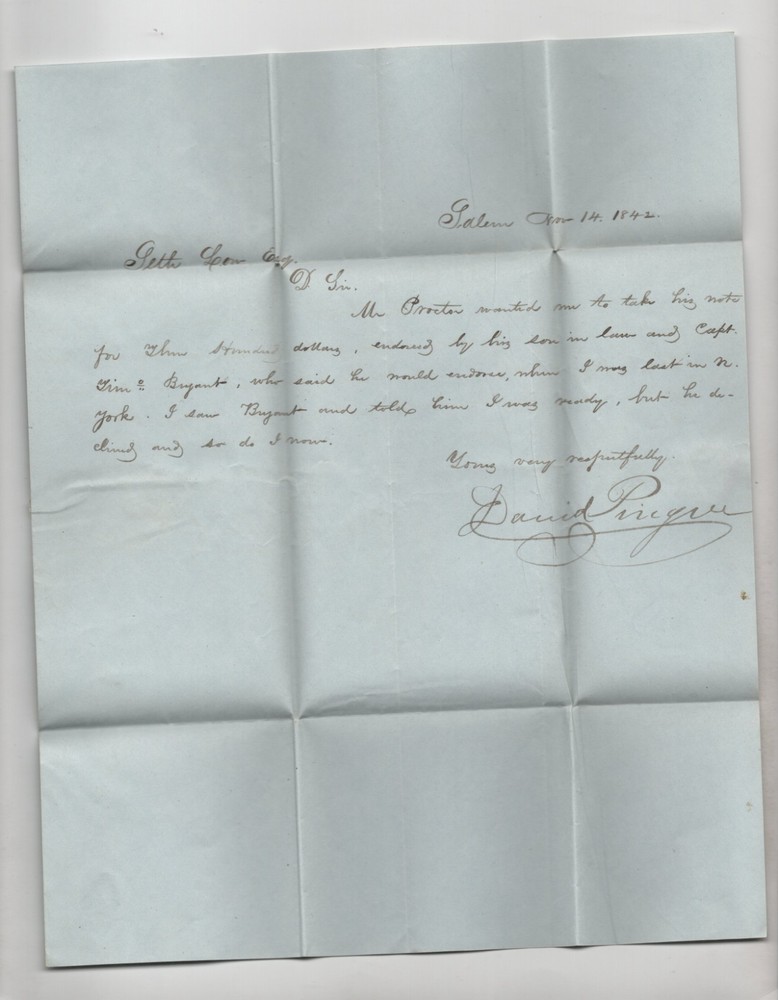 Salem Nov 14. 1842.
Seth Low Esq.
D. Sir.
Mr Proctor wanted me to take his note
for Three Hundred dollars, endorsed by his son in law and Capt.
Timo Bryant, who said he would endorse, when I was last in N.
York. I saw Bryant and told him I was ready, but he de-
clined and so do I now.
Yours very respectfully.
David Pingree